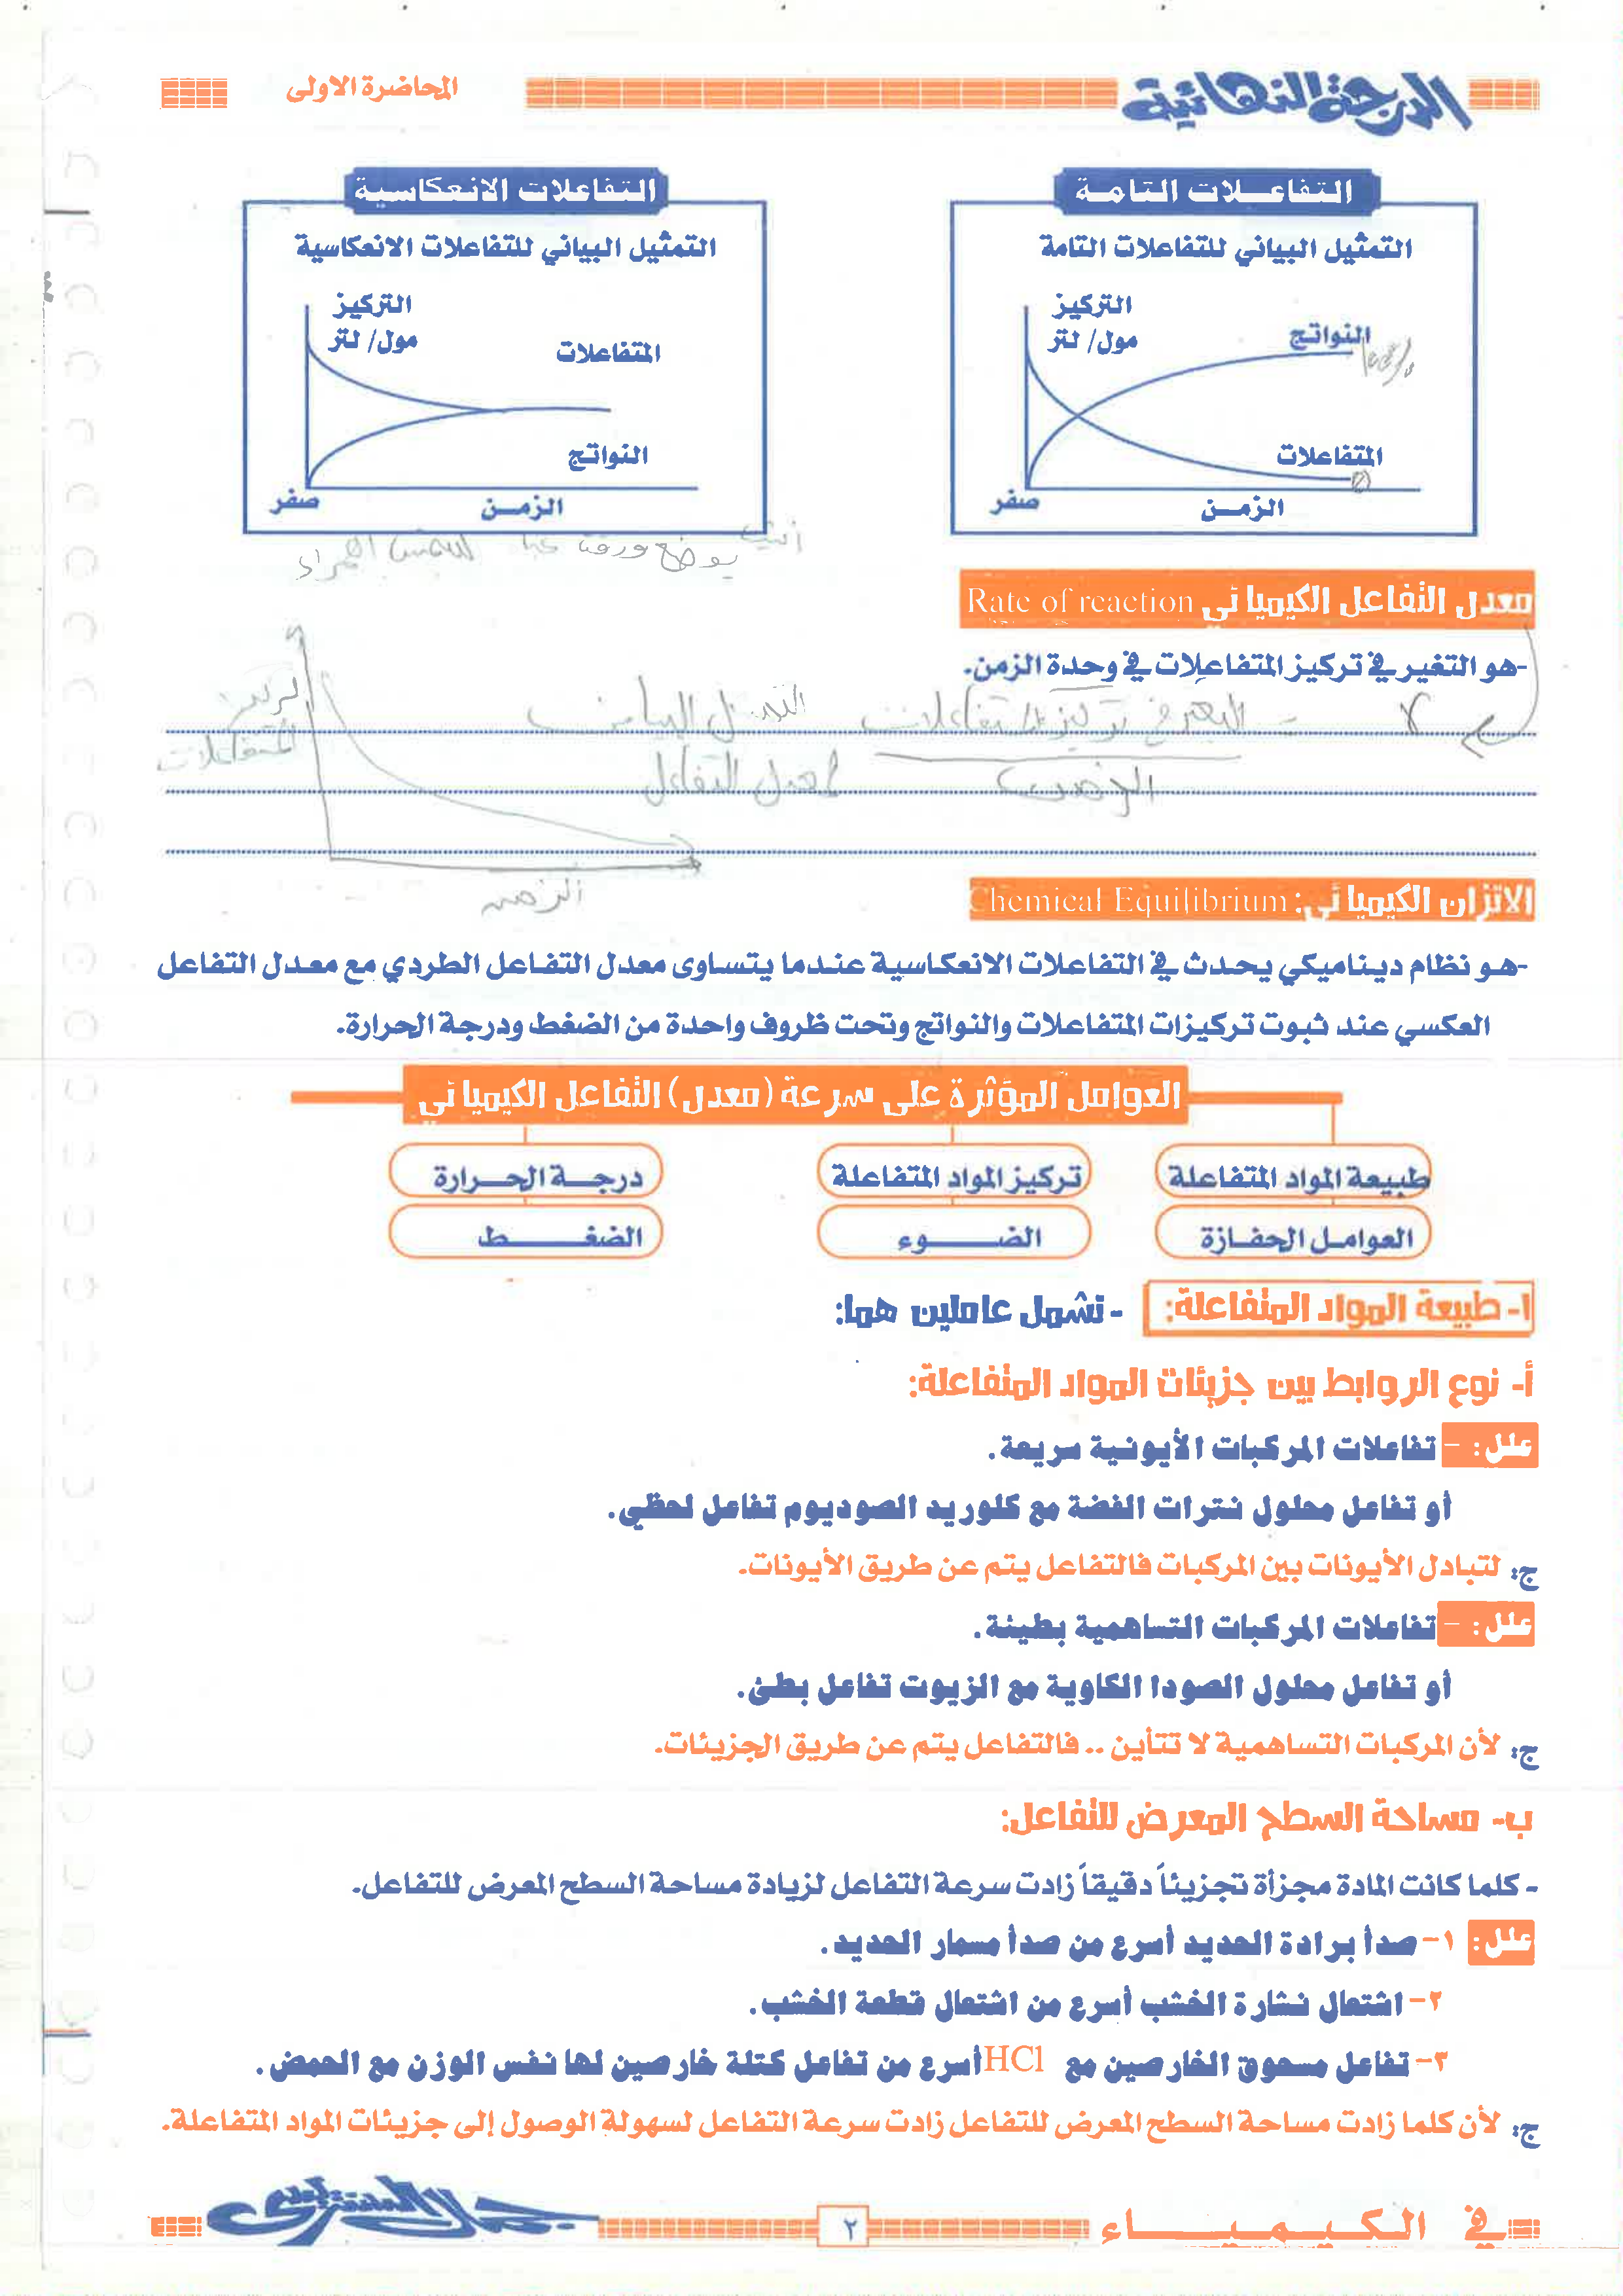 الدرجة النهائية
المحاضرة الاولى
التفاعـــلات التامــة
التمثيل البياني للتفاعلات التامة
التركيز
مول/ لتر
النواتج
المتفاعلات
صفر
الزمــن
التفاعلات الانعكاسية
التمثيل البياني للتفاعلات الانعكاسية
التركيز
مول/ لتر
المتفاعلات
النواتج
صفر
الزمــن
يوضع ورقة
معدل التفاعل الكيميائي Rate of reaction
-هو التغير في تركيز المتفاعلات في وحدة الزمن.
التغير في تركيز المتفاعلات
الزمن
التمثيل البياني
لمعدل التفاعل
تركيز
المتفاعلات
الزمن
الاتزان الكيميائي: Chemical Equilibrium
-هو نظام ديناميكي يحدث في التفاعلات الانعكاسية عندما يتساوى معدل التفاعل الطردي مع معدل التفاعل
العكسي عند ثبوت تركيزات المتفاعلات والنواتج وتحت ظروف واحدة من الضغط ودرجة الحرارة.
العوامل المؤثرة على سرعة (معدل) التفاعل الكيميائي
طبيعة المواد المتفاعلة
تركيز المواد المتفاعلة
درجــة الحــرارة
العوامـل الحفـازة
الضـــــوء
الضغــــــط
١- طبيعة المواد المتفاعلة: - تشمل عاملين هما:
أ- نوع الروابط بين جزيئات المواد المتفاعلة:
علل: - تفاعلات المركبات الأيونية سريعة.
أو تفاعل محلول نترات الفضة مع كلوريد الصوديوم تفاعل لحظي.
ج: لتبادل الأيونات بين المركبات فالتفاعل يتم عن طريق الأيونات.
علل: - تفاعلات المركبات التساهمية بطيئة.
أو تفاعل محلول الصودا الكاوية مع الزيوت تفاعل بطئ.
ج: لأن المركبات التساهمية لا تتأين .. فالتفاعل يتم عن طريق الجزيئات.
ب- مساحة السطح المعرض للتفاعل:
- كلما كانت المادة مجزأة تجزيئاً دقيقاً زادت سرعة التفاعل لزيادة مساحة السطح المعرض للتفاعل.
علل: ١- صدأ برادة الحديد أسرع من صدأ مسمار الحديد.
٢- اشتعال نشارة الخشب أسرع من اشتعال قطعة الخشب.
٣- تفاعل مسحوق الخارصين مع HCl أسرع من تفاعل كتلة خارصين لها نفس الوزن مع الحمض.
ج: لأن كلما زادت مساحة السطح المعرض للتفاعل زادت سرعة التفاعل لسهولة الوصول إلى جزيئات المواد المتفاعلة.
في الكيـميــــــاء
٢